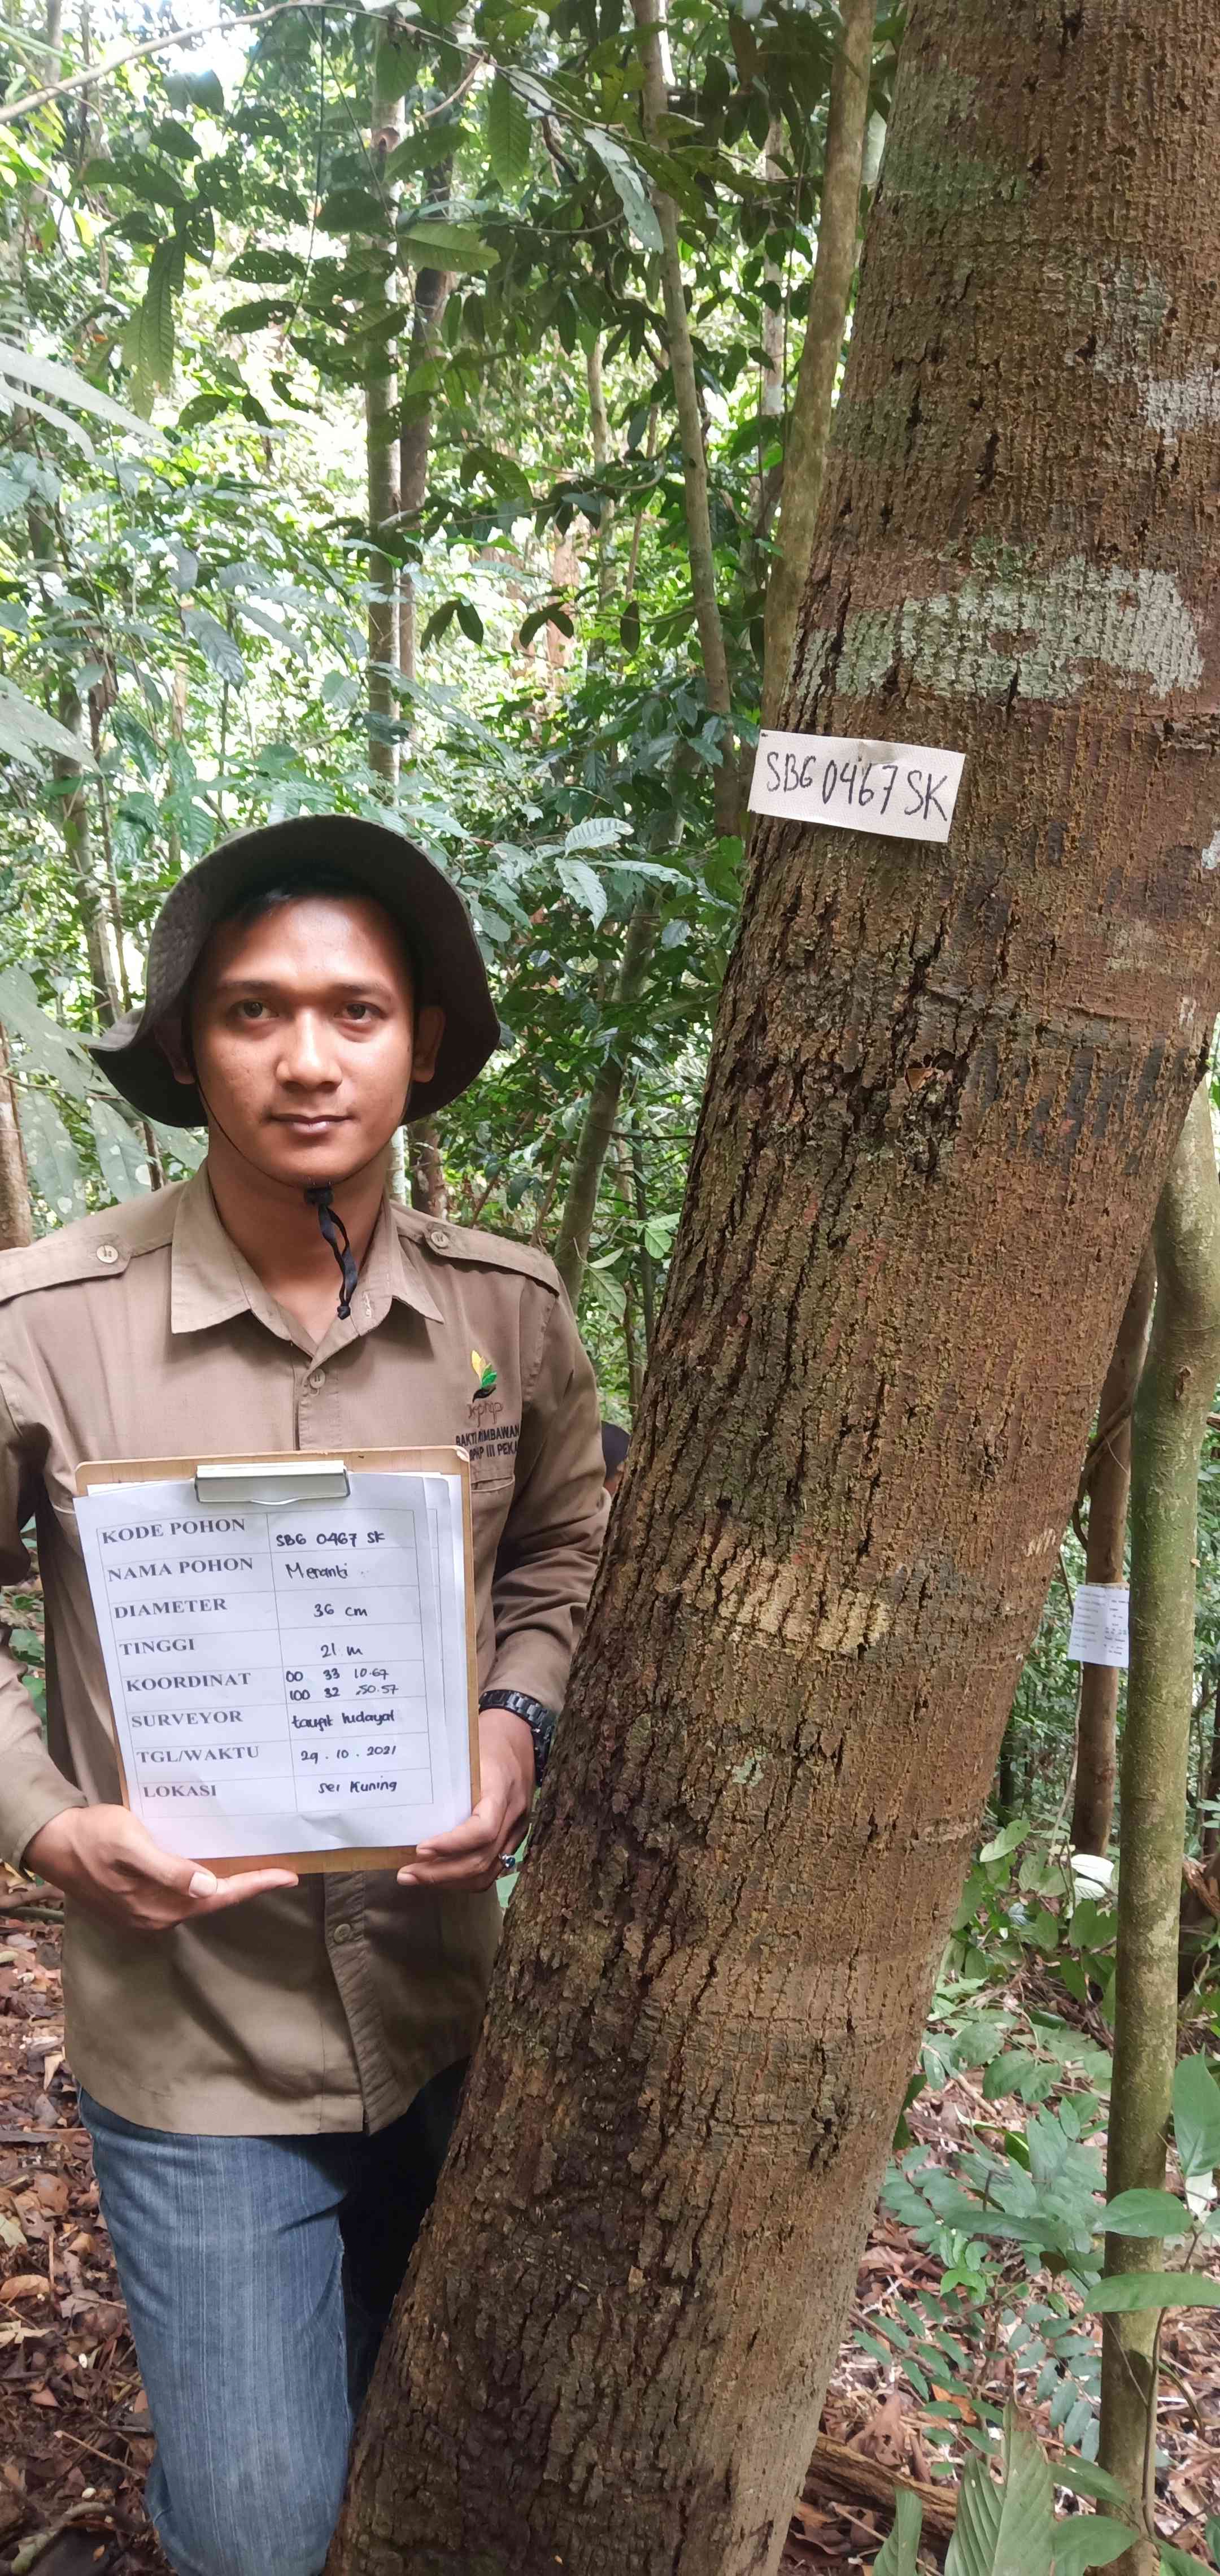 SBG 0467 SK
kphp
BAKTI RIMBAWAN
III PEKA
KODE POHON SBG 0467 SK
NAMA POHON Meranti
DIAMETER 36 cm
TINGGI 21 m
KOORDINAT 00 33 10.67
100 32 50.57
SURVEYOR taufik hidayat
TGL/WAKTU 29.10.2021
LOKASI sei Kuning